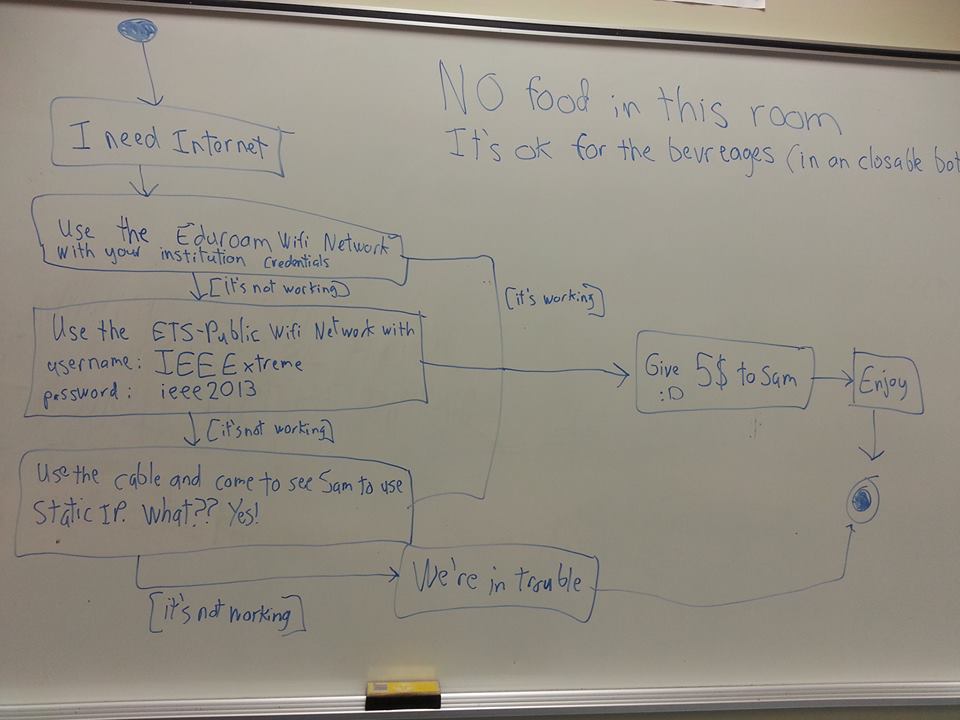 NO food in this room
It's ok for the bevreages (in an closable bot
I need Internet
Use the Eduroam Wifi Network
with your institution credentials
[it's not working]
[it's working]
Use the ETS-Public Wifi Network with
username: IEEExtreme
password: ieee2013
Give 5$ to Sam
:D
Enjoy
[it's not working]
Use the cable and come to see Sam to use
Static IP. What?? Yes!
We're in trouble
[it's not working]